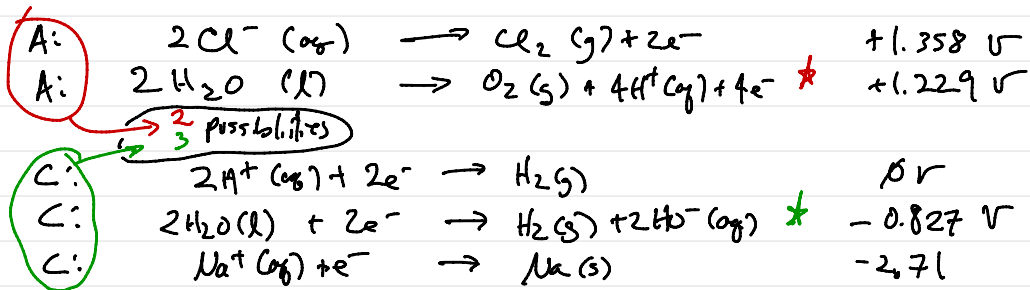 A: 2Cl⁻ (aq) → Cl₂ (g) + 2e⁻ +1.358 V
A: 2H₂O (l) → O₂(g) + 4H⁺(aq) + 4e⁻ * +1.229 V
2
3 possibilities
C: 2H⁺ (aq) + 2e⁻ → H₂(g) ∅ V
C: 2H₂O(l) + 2e⁻ → H₂(g) + 2HO⁻(aq) * - 0.827 V
C: Na⁺ (aq) + e⁻ → Na (s) -2.71